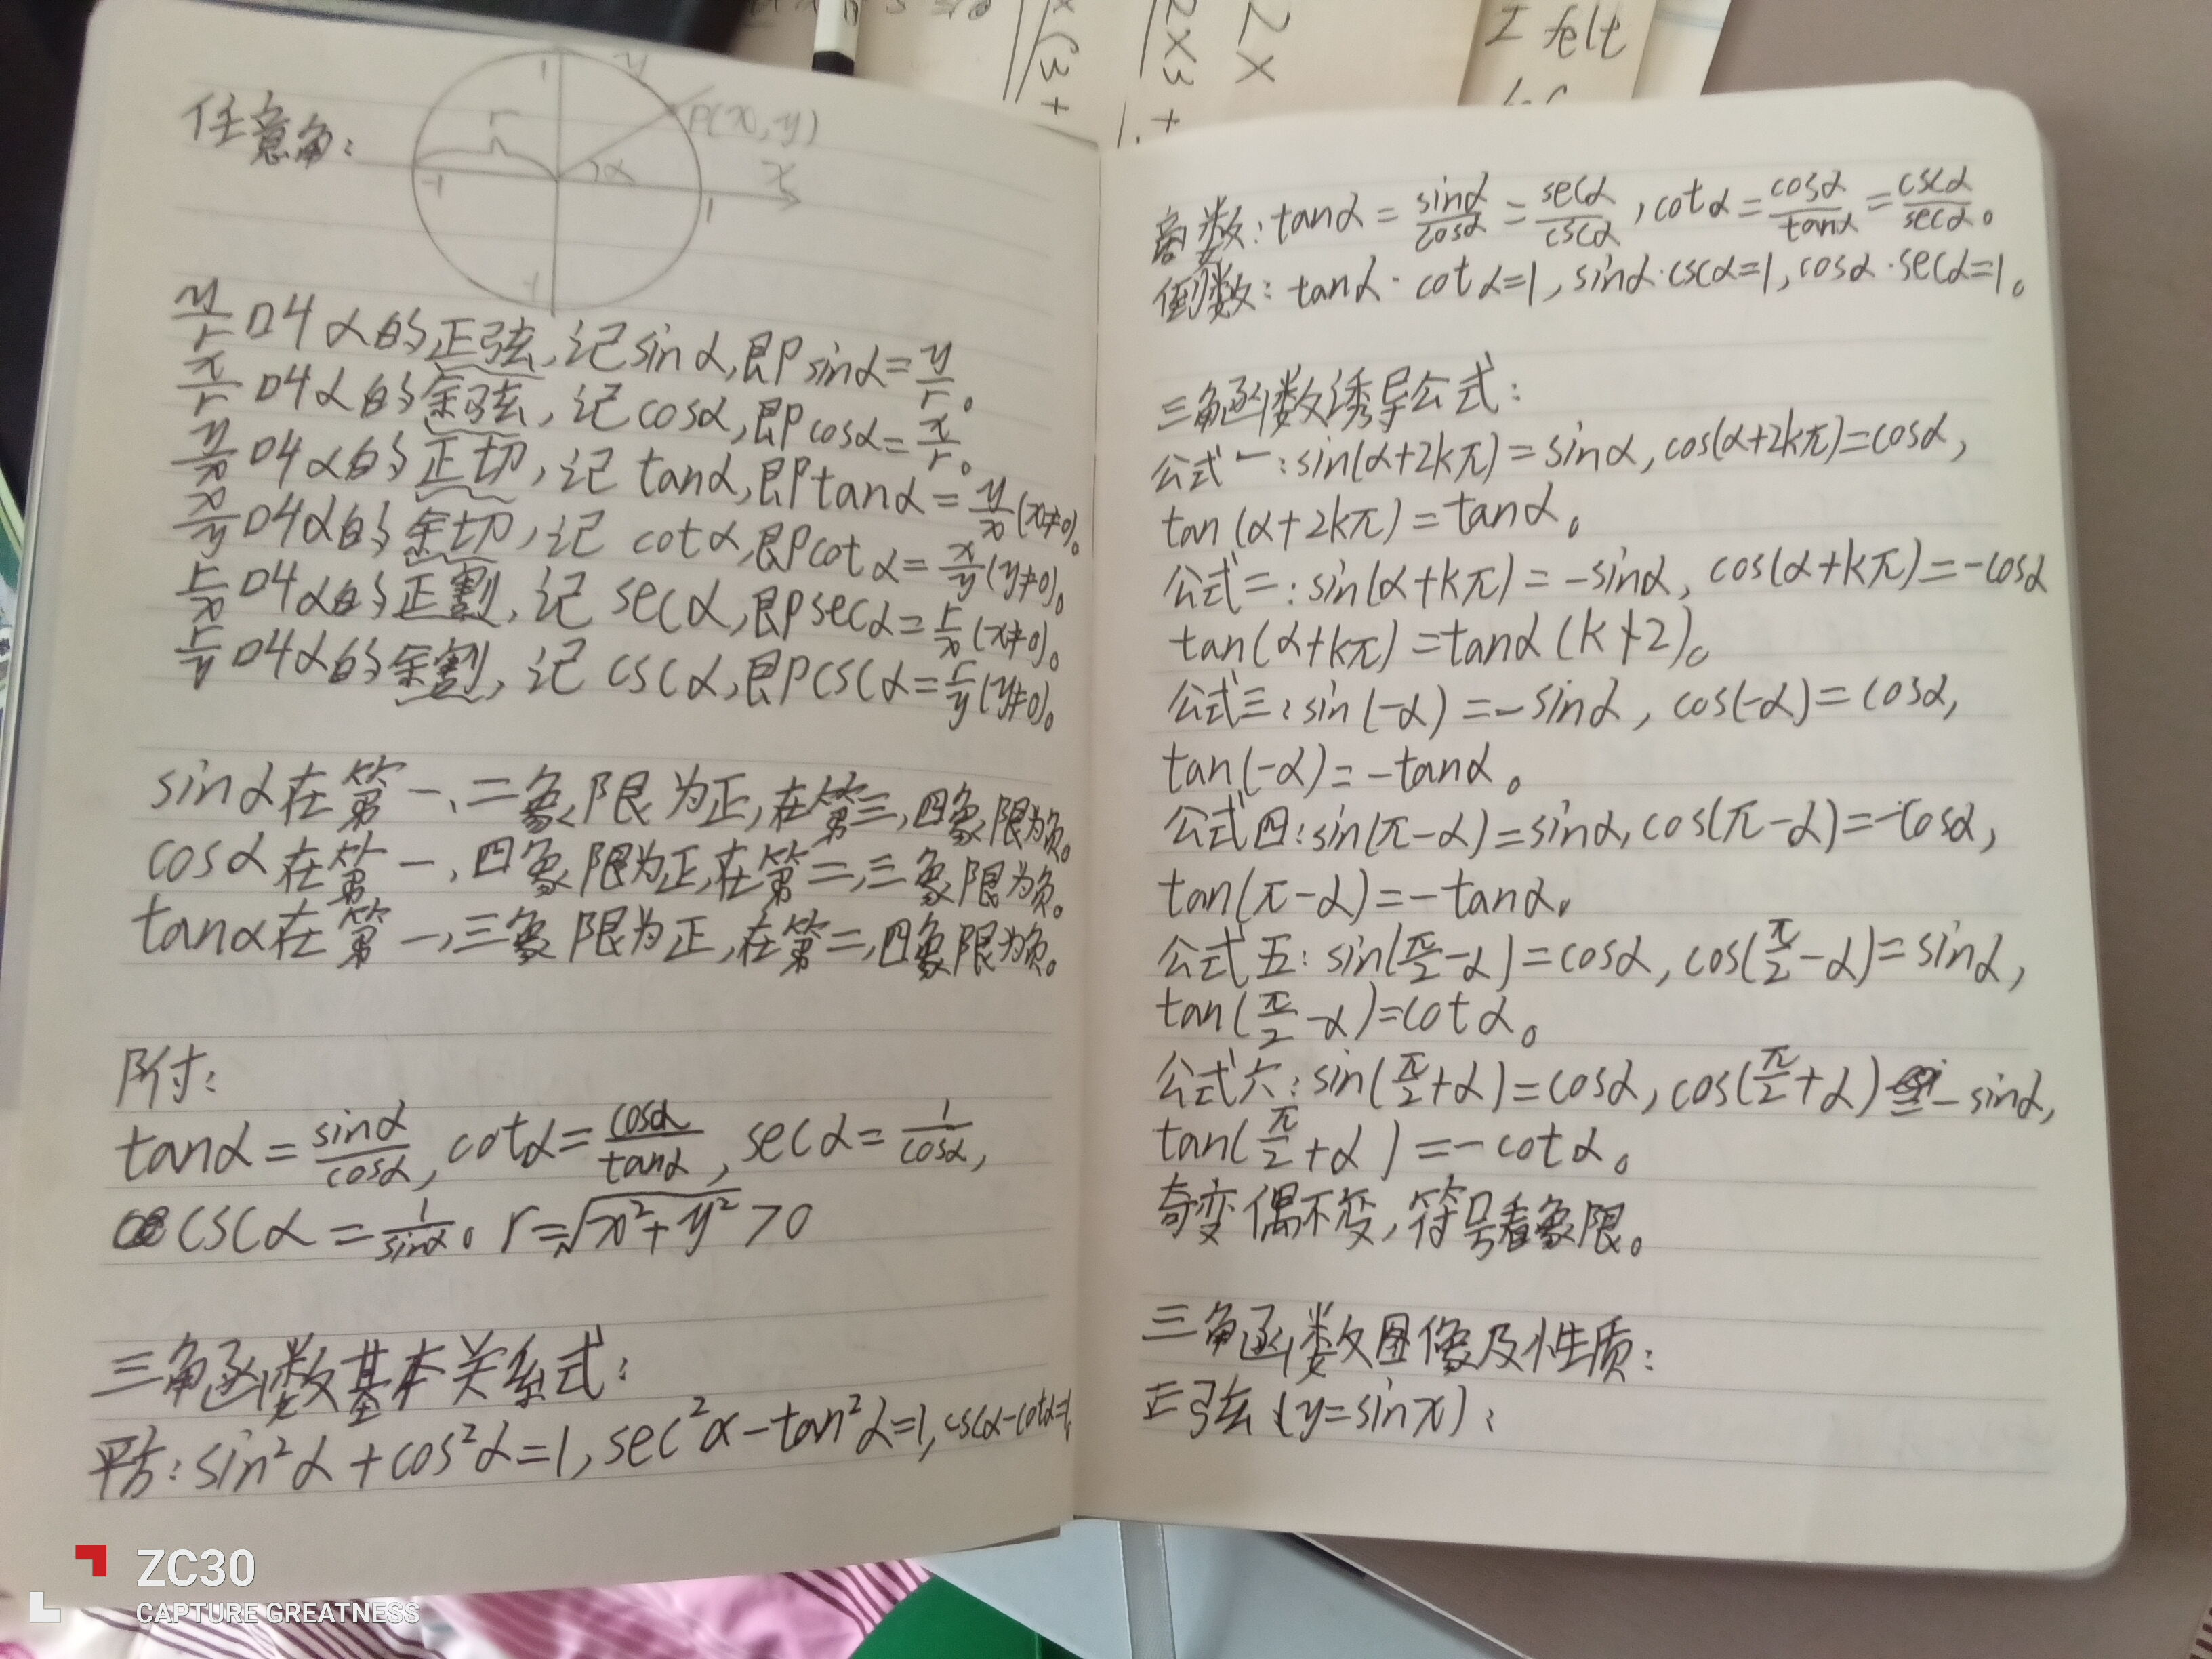 任意角:
1
y
r
P(x,y)
α
x
-1
1
-1
y/r 叫α的正弦,记sinα,即sinα=y/r。
x/r 叫α的余弦,记cosα,即cosα=x/r。
y/x 叫α的正切,记 tanα,即tanα=y/x(x≠0)。
x/y 叫α的余切,记 cotα,即cotα=x/y(y≠0)。
r/x 叫α的正割,记 secα,即secα=r/x(x≠0)。
r/y 叫α的余割,记 cscα,即cscα=r/y(y≠0)。
sinα在第一、二象限为正,在第三,四象限为负。
cosα在第一、四象限为正,在第二,三象限为负。
tanα在第一,三象限为正,在第二,四象限为负。
附:
tanα=sinα/cosα,cotα=cosα/tanα,secα=1/cosα,
cscα=1/sinα。r=√(x²+y²)>0
三角函数基本关系式:
平方:sin²α+cos²α=1,sec²α-tan²α=1,cscα-cotα=1,
商数:tanα=sinα/cosα=secα/cscα,cotα=cosα/tanα=cscα/secα。
倒数:tanα·cotα=1,sinα·cscα=1,cosα·secα=1。
三角函数诱导公式:
公式一:sin(α+2kπ)=sinα,cos(α+2kπ)=cosα,
tan(α+2kπ)=tanα。
公式二:sin(α+kπ)=-sinα,cos(α+kπ)=-cosα
tan(α+kπ)=tanα(k∤2)。
公式三:sin(-α)=-sinα,cos(-α)=cosα,
tan(-α)=-tanα。
公式四:sin(π-α)=sinα,cos(π-α)=-cosα,
tan(π-α)=-tanα。
公式五:sin(π/2-α)=cosα,cos(π/2-α)=sinα,
tan(π/2-α)=cotα。
公式六:sin(π/2+α)=cosα,cos(π/2+α)=-sinα,
tan(π/2+α)=-cotα。
奇变偶不变,符号看象限。
三角函数图像及性质:
正弦(y=sinx):
2x
2x3+
x(3+
I felt
ZC30
CAPTURE GREATNESS